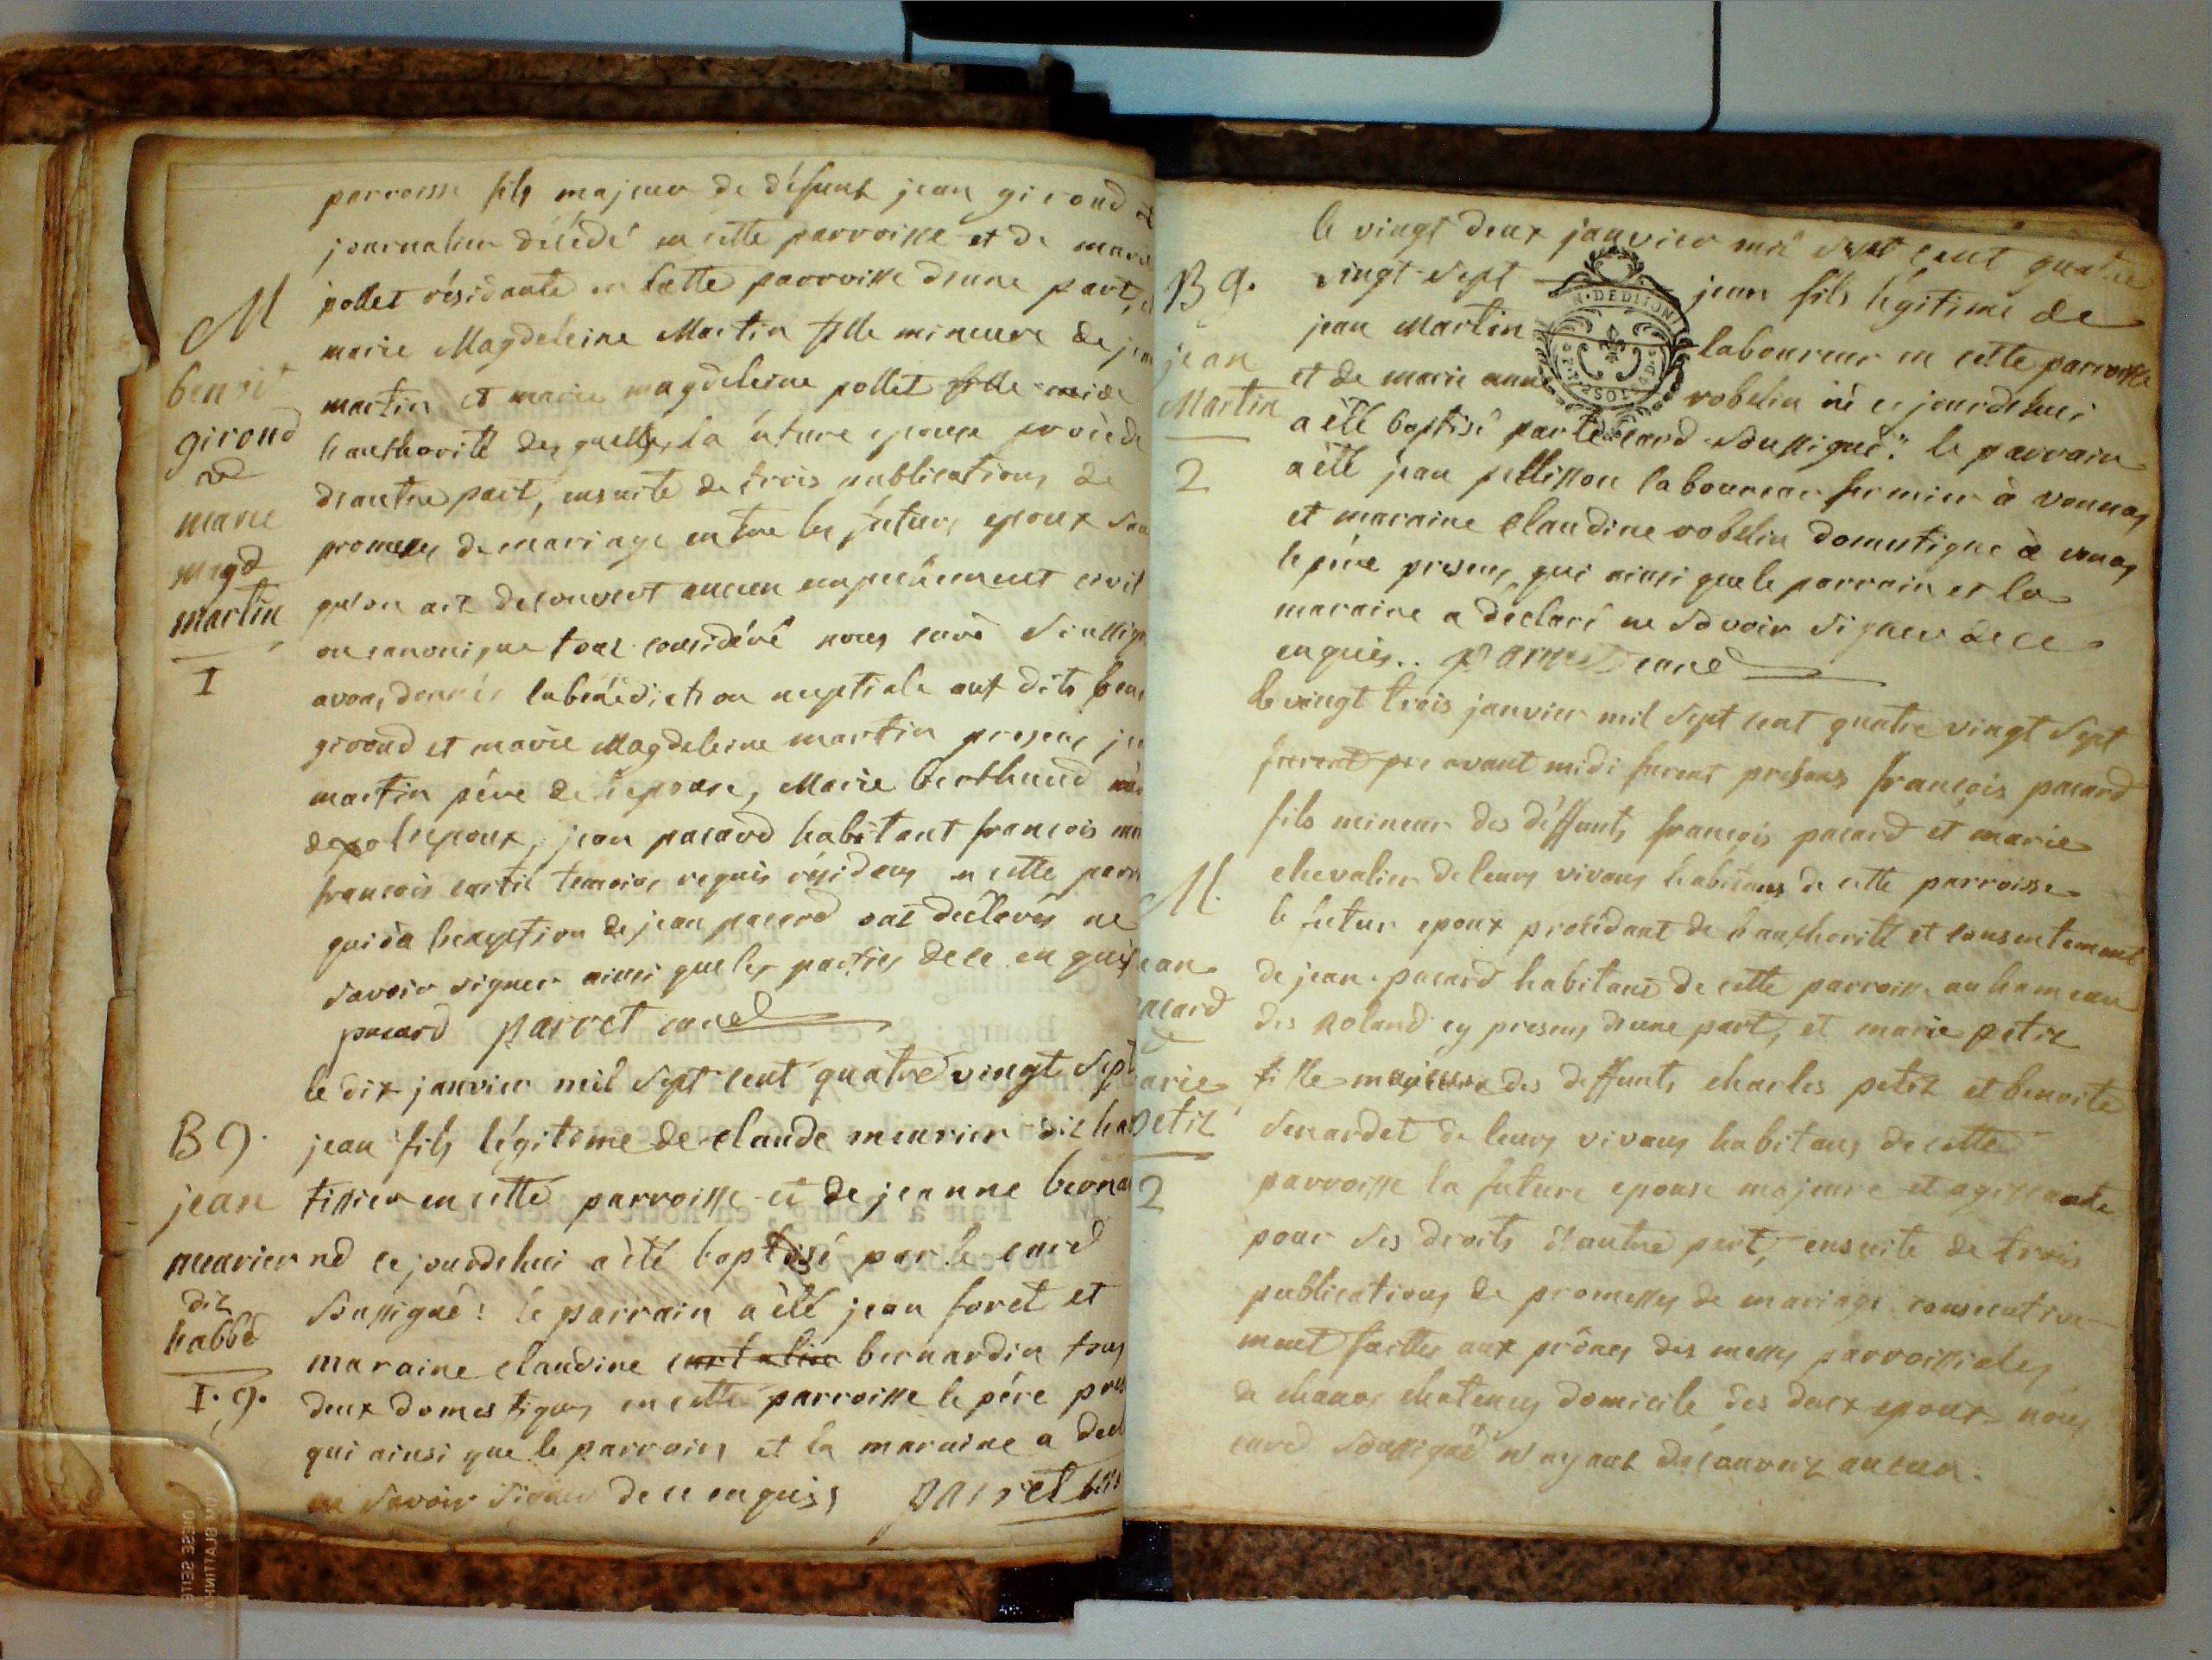 parroisse fils majeur de défunt jean giroud
journalier décédé en cette parroisse et de marie
pollet résidante en cette parroisse d'une part,
marie Magdeleine Martin fille mineure de
martin et marie magdeleine pollet de
l'authorité des quelles la future epouse procède
d'autre part, ensuite de trois publications de
promesses de mariage entre les futurs epoux
qu'on ait decouvert aucun empechement civil
ou canonique tout considéré nous curé
avons donnés la bénédiction nuptiale aux dits
giroud et marie Magdeleine martin presens
martin père de l'epouse, Marie berthaud
l'epoux, jean pacard habitant francois
francois temoins requis résidens en cette
qui à l'exception de jean pacard ont déclarés ne
savoir signer ainsi que les parties de ce enquis
pacard parret curé
M
benoit
giroud
&
marie
magd
martin
I
le dix janvier mil sept cent quatre vingt sept
jean fils légitime de claude meurier dit
tissier en cette parroisse et de jeanne
né ce jourdehui a été baptisé par le curé
soussigné : le parrain a été jean foret et
maraine claudine bernardin tous
deux domestiques en cette parroisse le père
qui ainsi que le parrain et la maraine a
ne savoir signer de ce enquis parret
B 9.
jean
meurier
dit
habbé
I. 9.
le vingt deux janvier mil sept cent quatre
vingt-sept jean fils légitime de
jean Martin laboureur en cette parroisse
et de marie anne robelin né ce jourdehui
a été baptisé par le curé soussigné : le parrain
a été jean pellisson laboureur fermier à vonnas
et maraine claudine robelin domestique à vonas
le père presens, qui ainsi que le parrain et la
maraine a déclaré ne savoir signer de ce
enquis.. parret curé
B 9.
jean
Martin
2
le vingt trois janvier mil sept cent quatre vingt sept
avant midi furent presens francois pacard
fils mineur des déffunts francois pacard et marie
chevalier de leurs vivans habitans de cette parroisse
le futur epoux procédant de l'authorité et consentement
de jean pacard habitant de cette parroisse au hameau
des Roland cy presens d'une part, et marie petit
fille majeure des deffunts charles petit et benoite
Senardet de leurs vivans habitans de cette
parroisse la future epouse majeure et agissante
pour ses droits d'autre part, ensuite de trois
publications de promesses de mariage consecutive-
ment faittes aux prônes des messes parroissiales
de chanos chatenay domicile des deux epoux nous
curé soussigné n'ayant découvert aucun
M.
ean
acard
&
arie
petit
2